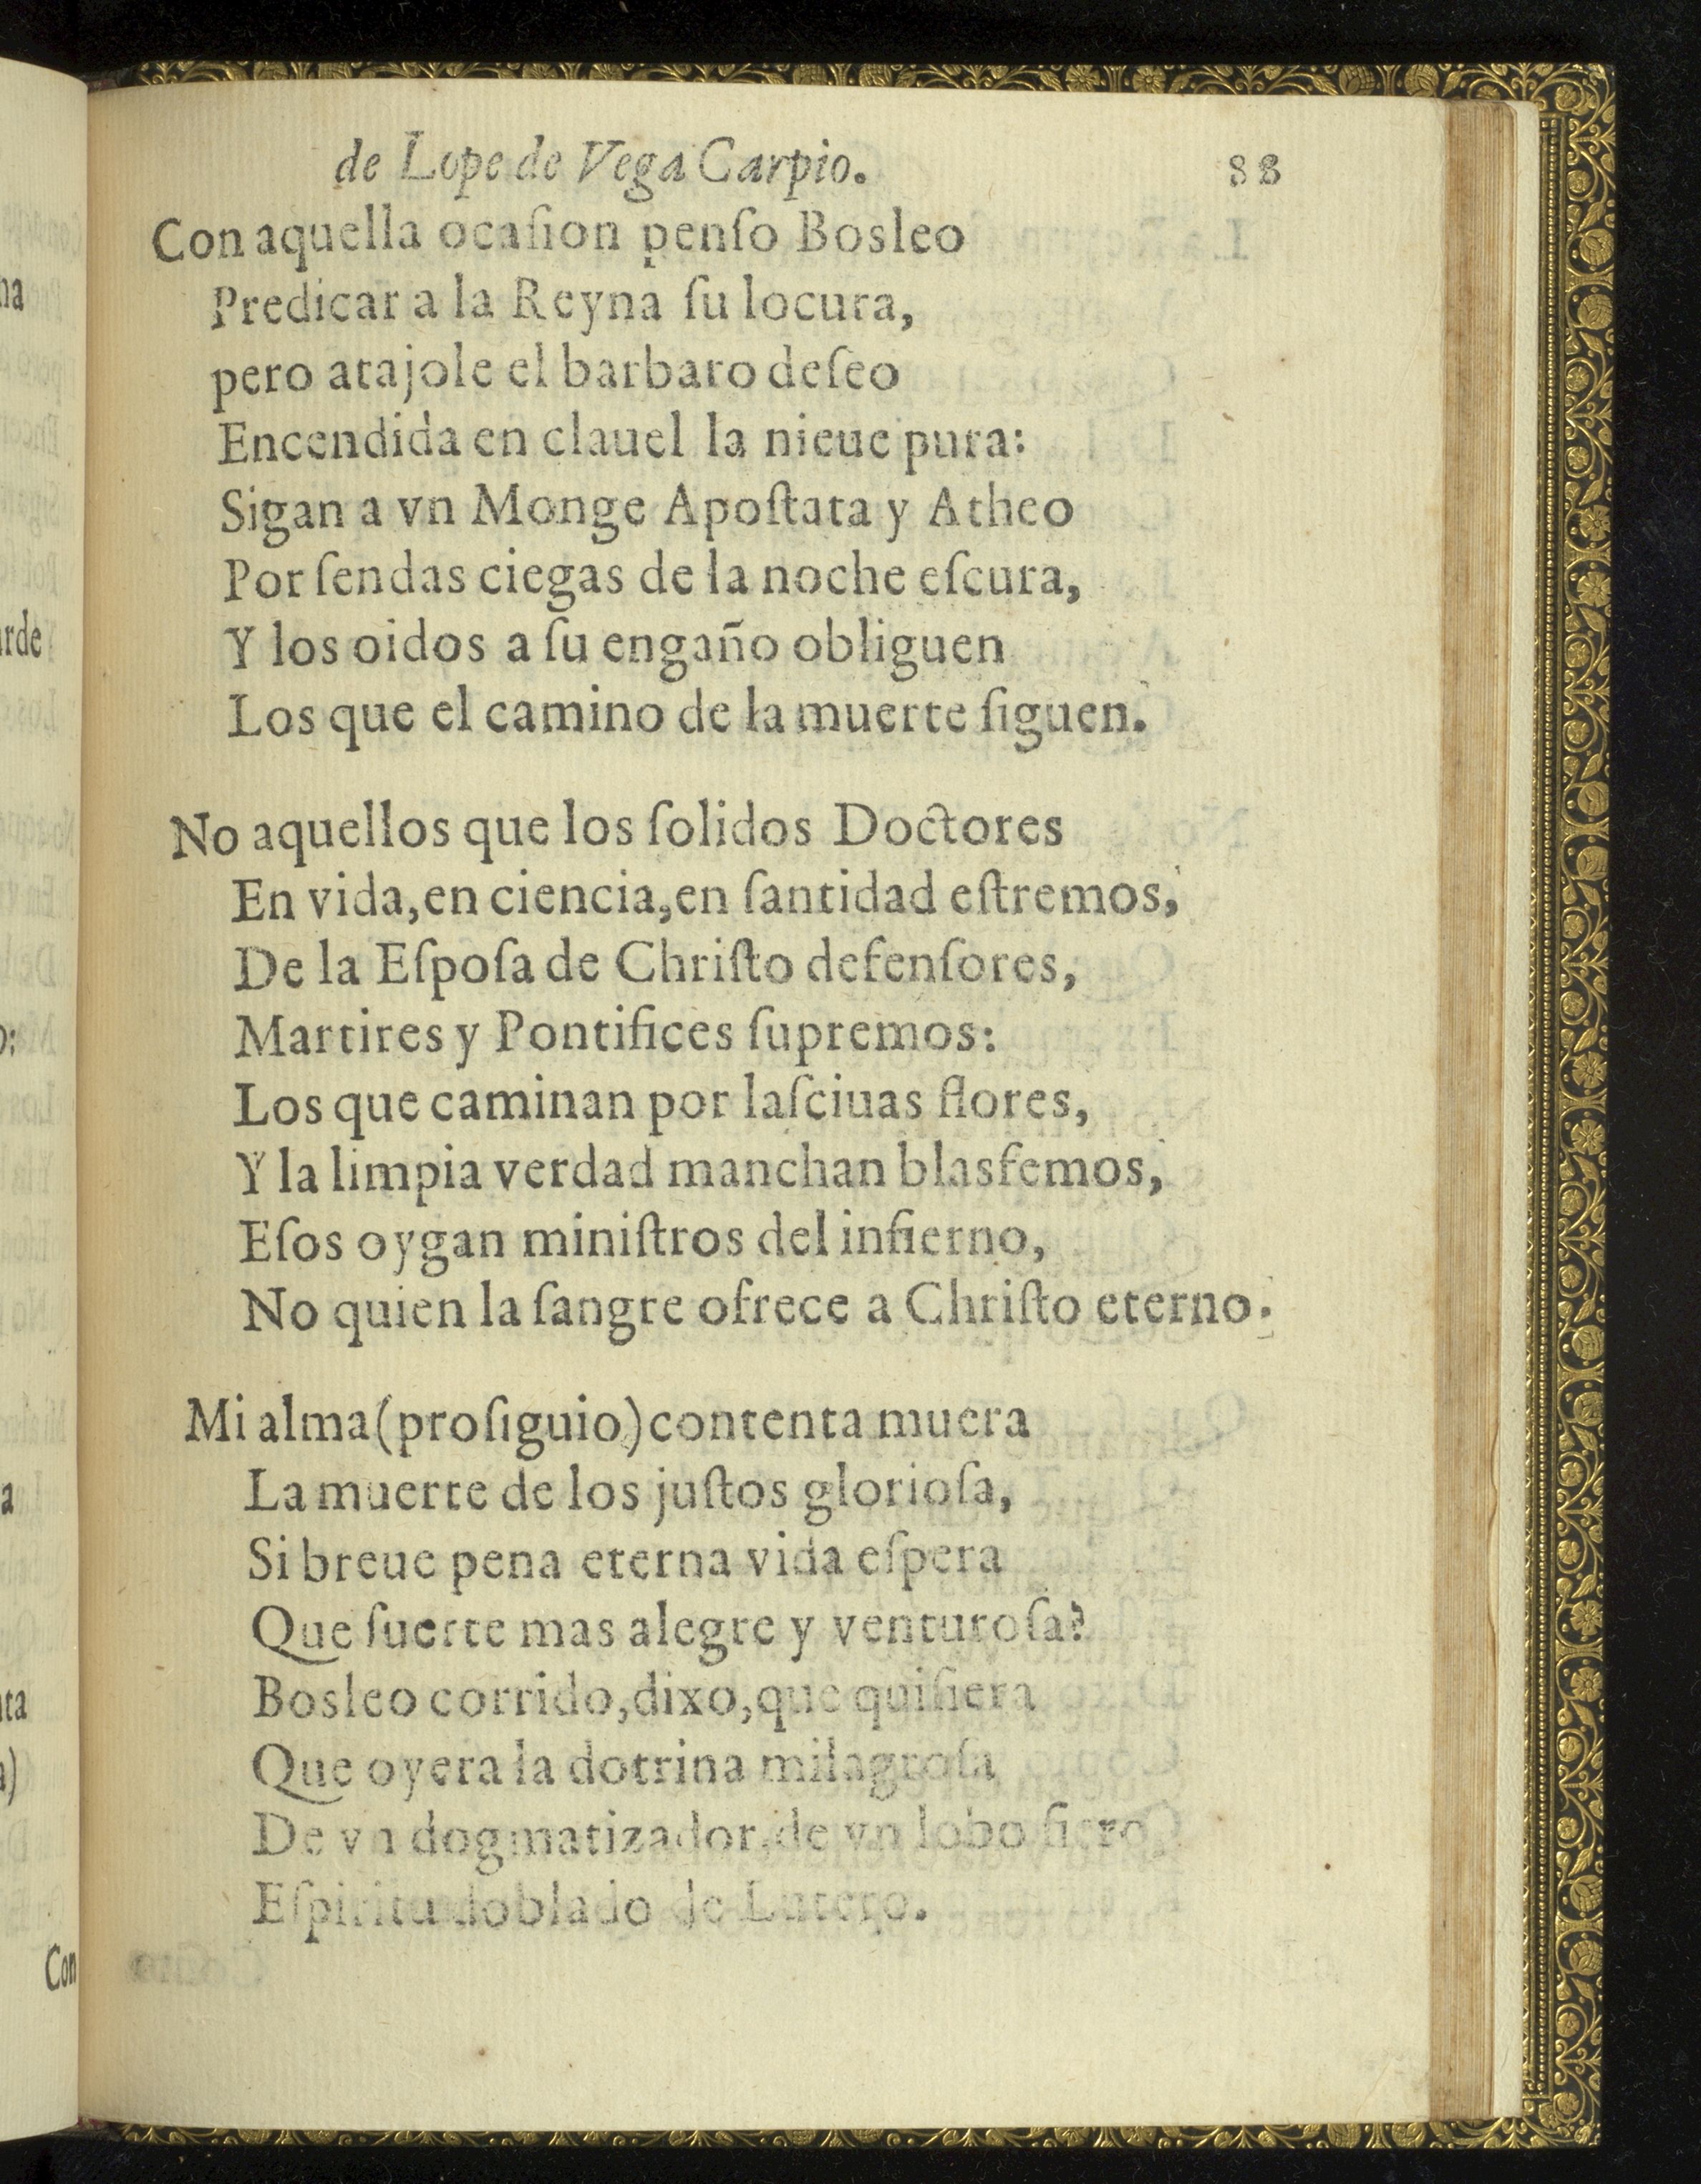 de Lope de Vega Carpio. 88
Con aquella ocaſion penſo Bosleo
Predicar a la Reyna ſu locura,
pero atajole el barbaro deſeo
Encendida en clauel la nieue pura:
Sigan a vn Monge Apoſtata y Atheo
Por ſendas ciegas de la noche eſcura,
Y los oidos a ſu engaño obliguen
Los que el camino de la muerte ſiguen.
No aquellos que los ſolidos Doctores
En vida, en ciencia, en ſantidad eſtremos,
De la Eſpoſa de Chriſto defenſores,
Martires y Pontifices ſupremos:
Los que caminan por laſciuas flores,
Y la limpia verdad manchan blasfemos,
Eſos oygan miniſtros del infierno,
No quien la ſangre ofrece a Chriſto eterno.
Mi alma (proſiguio) contenta muera
La muerte de los juſtos glorioſa,
Si breue pena eterna vida eſpera
Que ſuerte mas alegre y venturoſa?
Bosleo corrido, dixo, que quiſiera
Que oyera la dotrina milagroſa
De vn dogmatizador, de vn lobo fiero
Eſpiritu doblado de Lutero.
na
arde
o:
a
nta
a)
Con